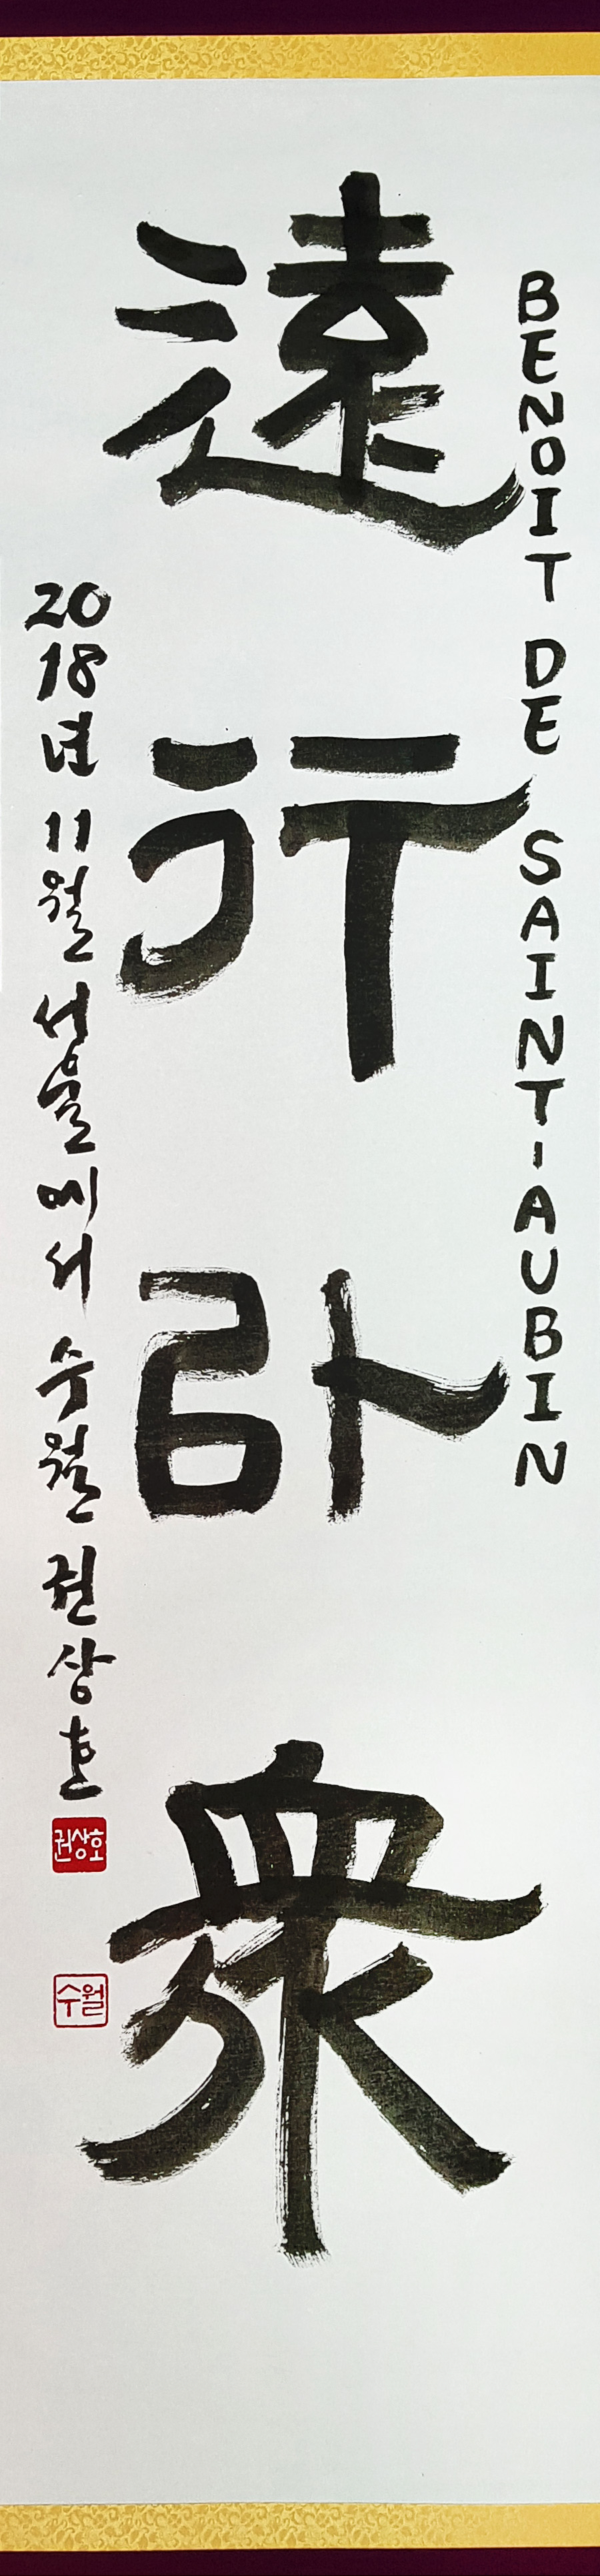 BENOIT DE SAINT-AUBIN
遠行라衆
2018년 11월 서울에서 수월 권상호
권상호
수월